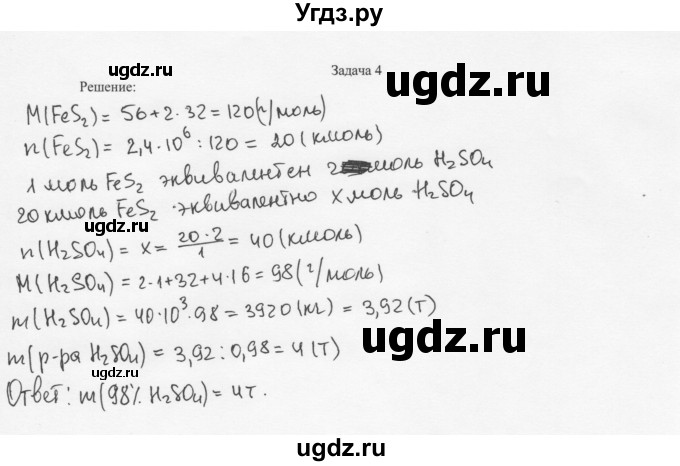 Угдз.ру
ugdz.ru
Задача 4
ugdz.ru
Решение:
M(FeS₂) = 56+2·32=120(г/моль)
n(FeS₂) = 2,4·10⁶ : 120 = 20 (кмоль)
1 моль FeS₂ эквивалентен 2 моль H₂SO₄
20 кмоль FeS₂ эквивалентно x моль H₂SO₄
ugdz.ru
n(H₂SO₄) = x = 20·2/1 = 40 (кмоль)
M(H₂SO₄) = 2·1+32+4·16 = 98 (г/моль)
m(H₂SO₄) = 40·10³·98 = 3920 (кг) = 3,92 (т)
ugdz.ru
m(р-ра H₂SO₄) = 3,92 : 0,98 = 4 (т)
ugdz.ru
Ответ: m(98% H₂SO₄) = 4т.
ugdz.ru